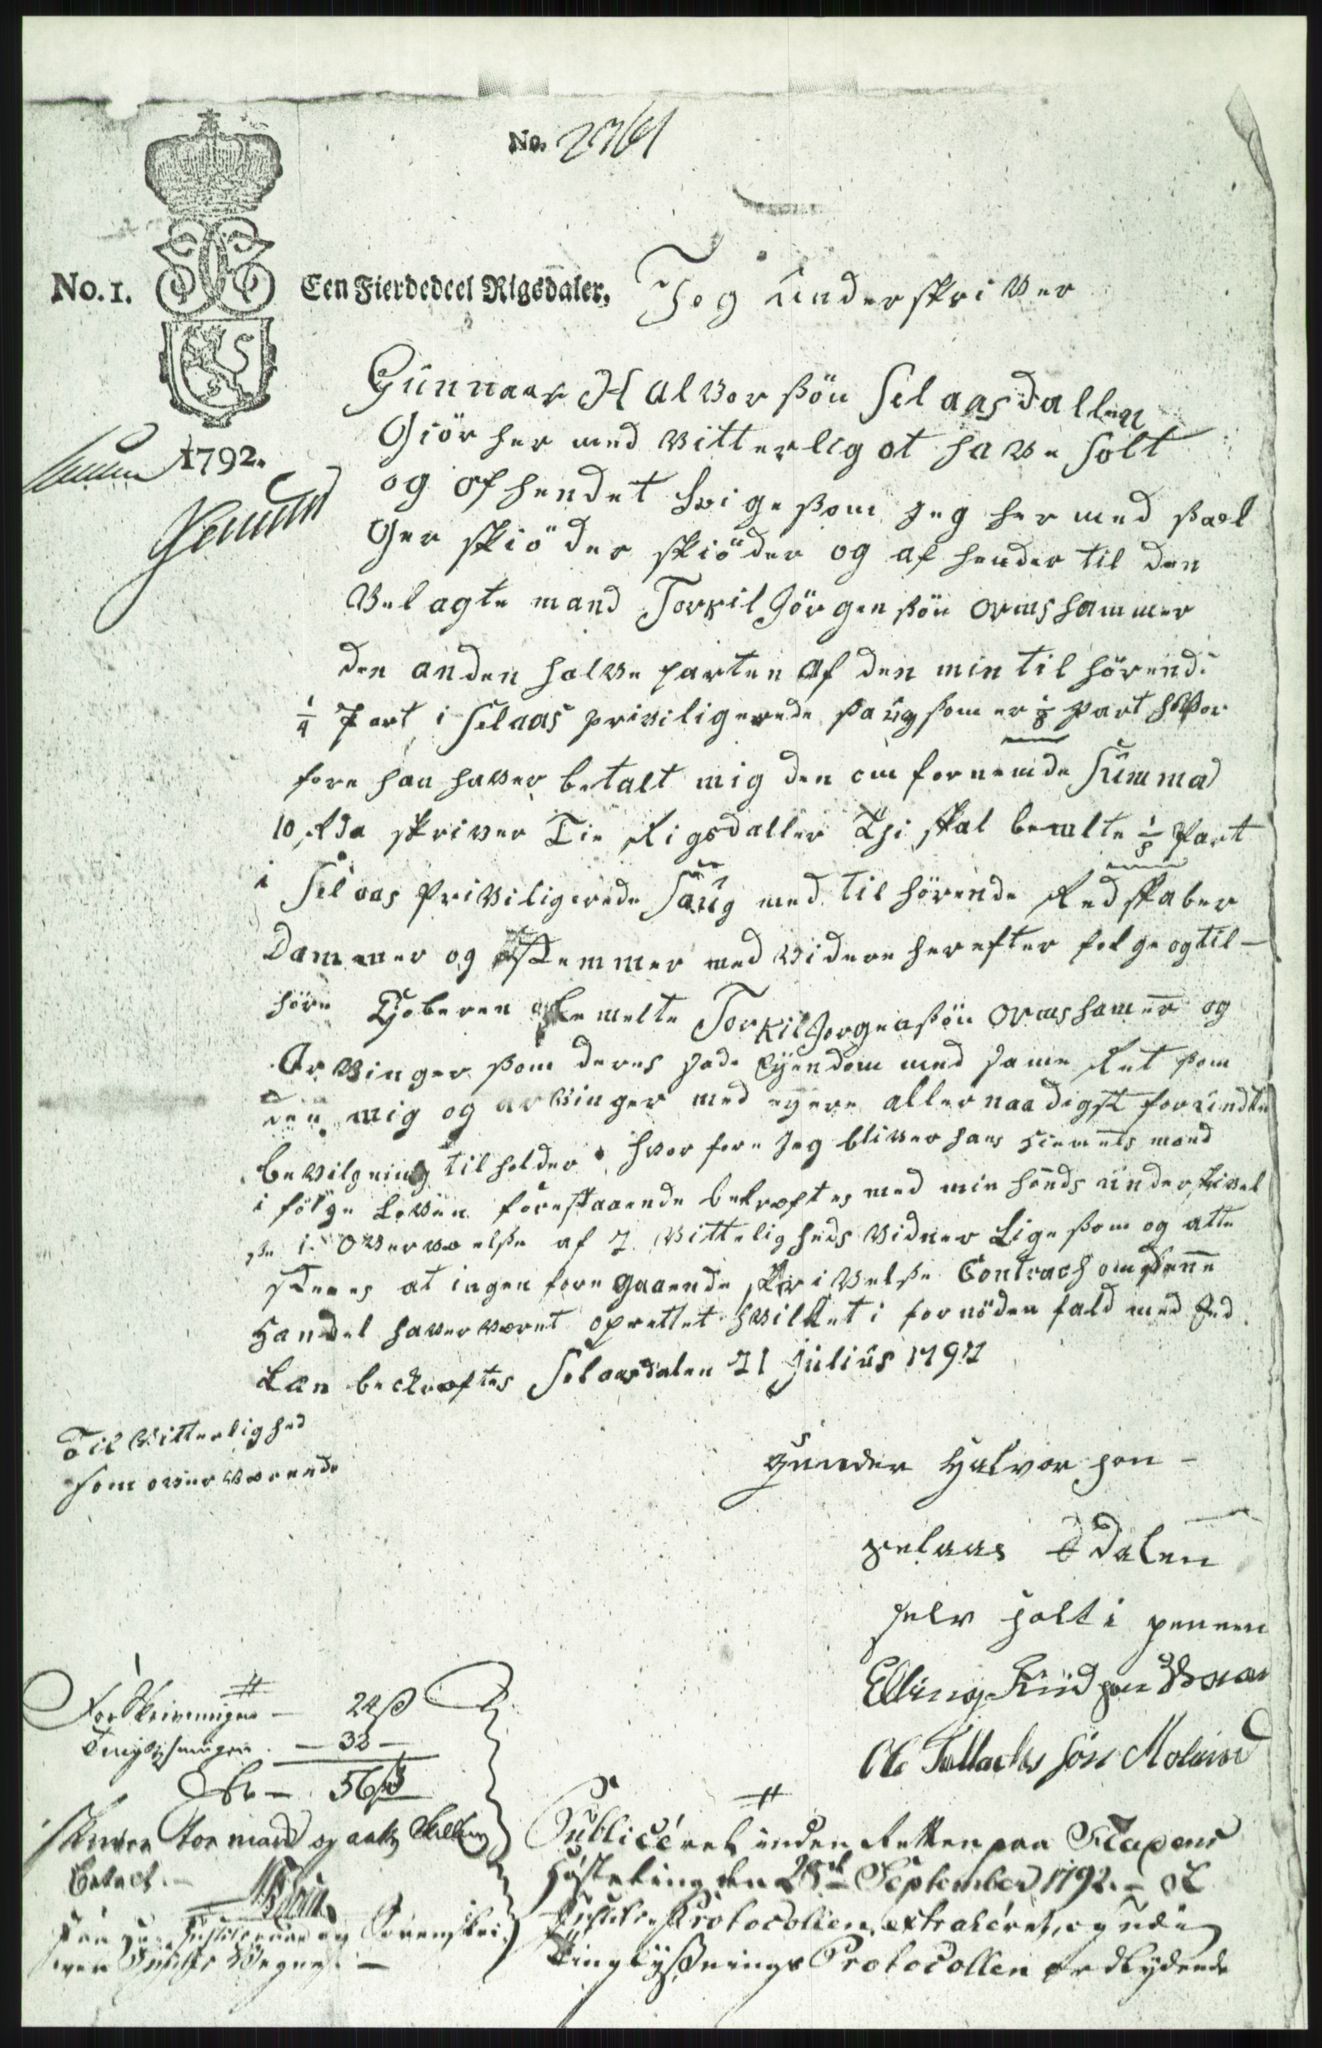 No. 2761
No. 1. Een Fierdedeel Rigsdaler. Jeg underskriver
1792.
Gunnaar Halvorssön Selaasdallen
Giör her med vitterligt at have solt
og afhendet ligesom Jeg her med sæl
Ger skiöder skiöder og afhender til den
Velagte mand Torkil Jörgenssön ormshammer
den anden halve parten af den min til hörende
1/4 Part i Selaas priviligerede saug som er 1/8 Part hvor
fore han haver betalt mig den om fornemde Summa
10 Rda skriver Tie Rigsdaller Thi skal bemelte 1/8 Part
i Selaas Priviligerede Saug med til hörende Redskaber
Dammer og Stemmer med videre herefter følge og til-
höre Kjøberen bemelte Torkil Jorgenssön ormshamer og
Arvinger som deres Jode Eyendom med same Ret som
den mig og arvinger med eyere allernaadigst forundte
bevilgning tilholder hvor fore Jeg bliver hans Hiemels mand
i følge Loven forestaaende bekræftes med min haands underskrivel
se i overværelse af 2 Vitteligheds Vidner Ligesom og atte
steres at ingen foregaaende skrivelse Contrach om denne
Handel haver været oprettet hvilket i fornöden fald med Eed
kan beckræftes Selaasdalen 21 Julius 1792
Til Vitterlighed
som overværende
Gunder Halvorsen -
selaas Ddalen
selv holt i pennen
Elling Knudsen
Ole Tallachs sön Moland
For Skrivningen - 24 ß
Tinglysningen - 32 -
Er - 56 ß
Skriver Tor mard og aate Skilling
Betalt. -
Publiceret inden Retten paa
Høsteting den 28de September 1792. -
Protocollen extraheret, og udi
Tinglysnings Protocollen ordlydende